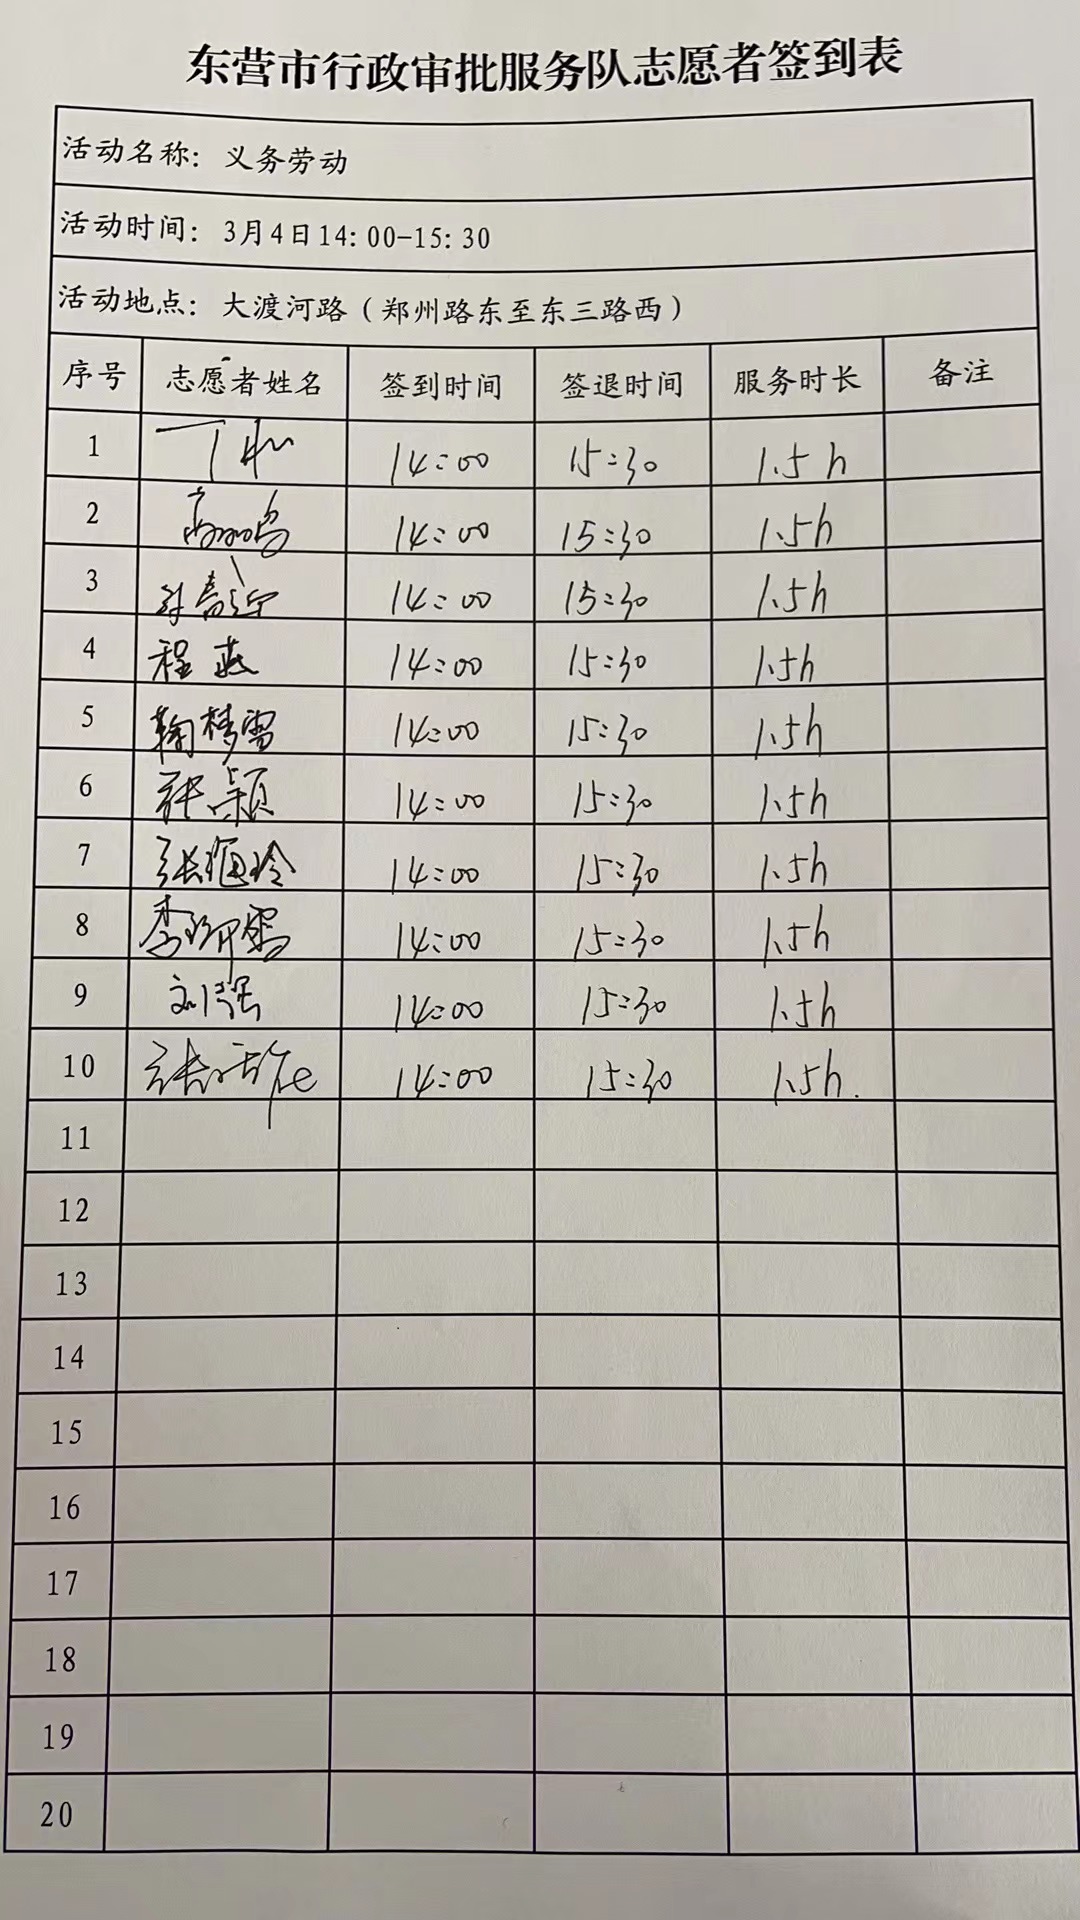 东营市行政审批服务队志愿者签到表
活动名称：义务劳动
活动时间：3月4日14:00-15:30
活动地点：大渡河路（郑州路东至东三路西）
序号 志愿者姓名 签到时间 签退时间 服务时长 备注
1 14:00 15:30 1.5h
2 14:00 15:30 1.5h
3 14:00 15:30 1.5h
4 程燕 14:00 15:30 1.5h
5 鞠梦雪 14:00 15:30 1.5h
6 张颖 14:00 15:30 1.5h
7 14:00 15:30 1.5h
8 14:00 15:30 1.5h
9 刘强 14:00 15:30 1.5h
10 14:00 15:30 1.5h.
11
12
13
14
15
16
17
18
19
20